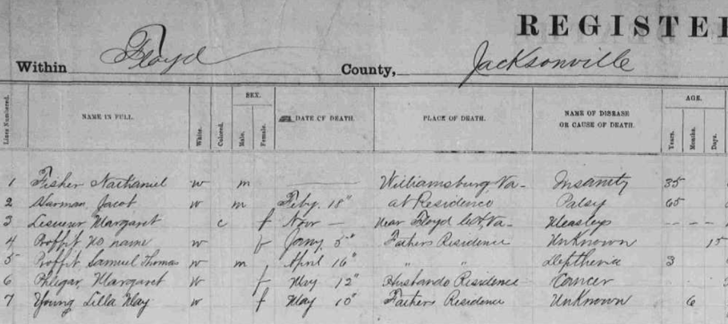 REGISTER
Within Floyd County, Jacksonville
Lines Numbered. NAME IN FULL. White. Colored. SEX. Male. Female. DATE OF DEATH. PLACE OF DEATH. NAME OF DISEASE OR CAUSE OF DEATH. AGE. Years. Months. Days.
1 Fisher Nathaniel w m — Williamsburg Va- Insanity 35
2 Harman Jacob w m Feby. 18" at Residence Palsy 65
3 Lesueur Margaret c f Novr — near Floyd Va- Measles - - - -
4 Proffit no name w f Jany 5" Fathers Residence Unknown 15
5 Proffit Samuel Thomas w m April 16" " " Diptheria 3
6 Phlegar Margaret w f May 12" Husbands Residence Cancer
7 Young Lilla May w f May 10" Fathers Residence Unknown 6